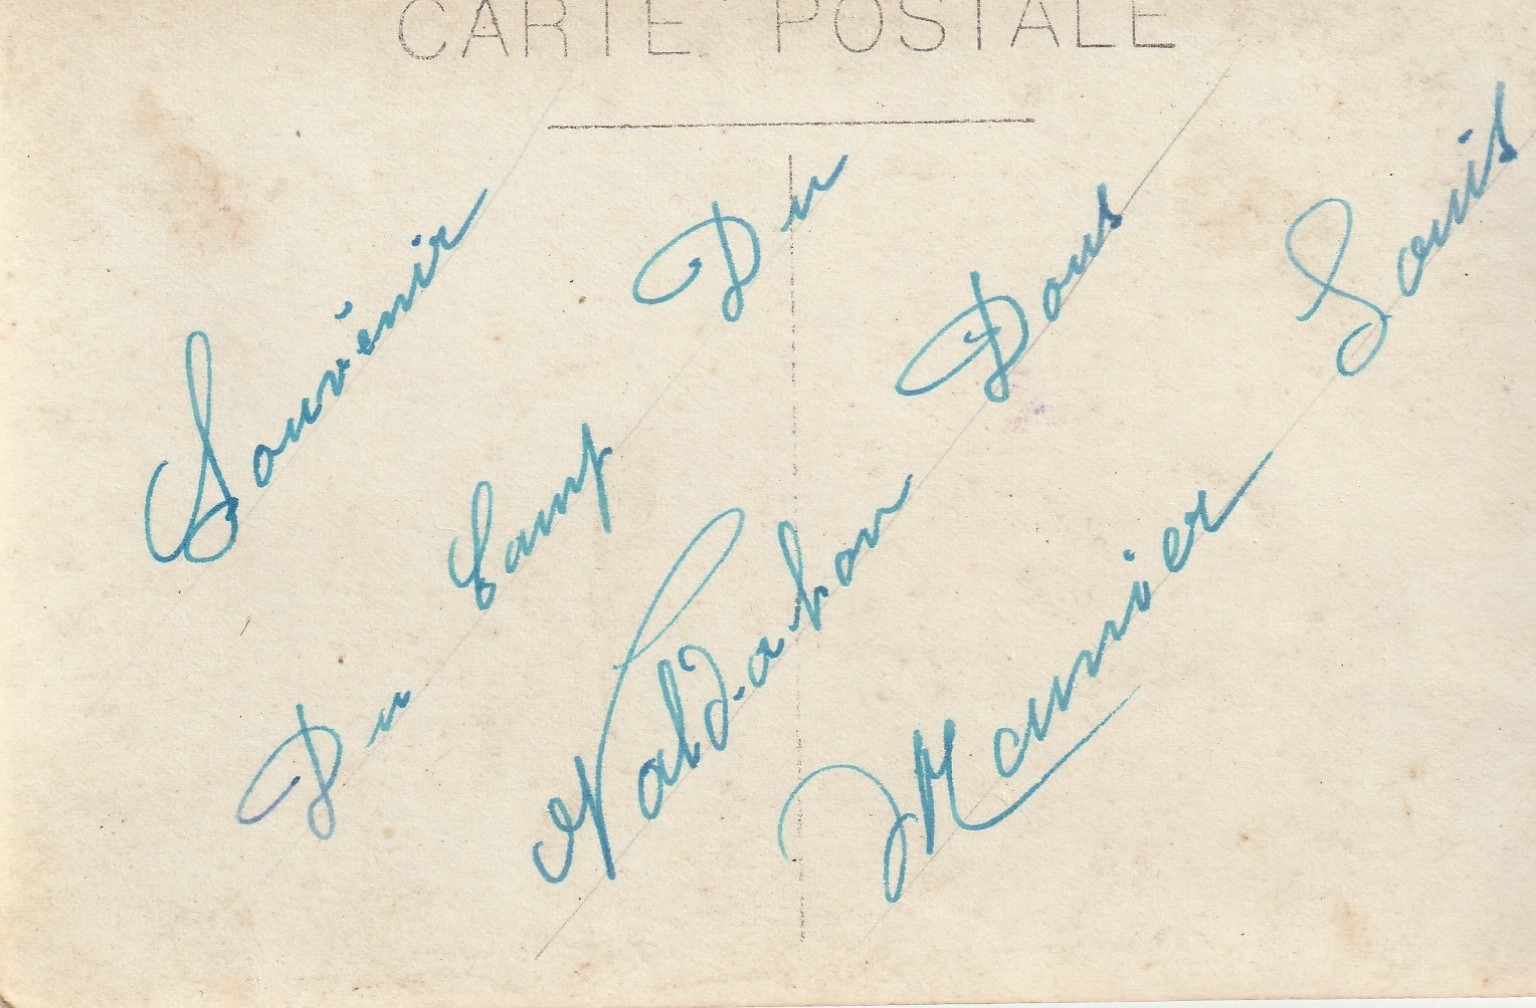 CARTE POSTALE
Souvénir
Du Camp Du
Valdahon Dous
Louis